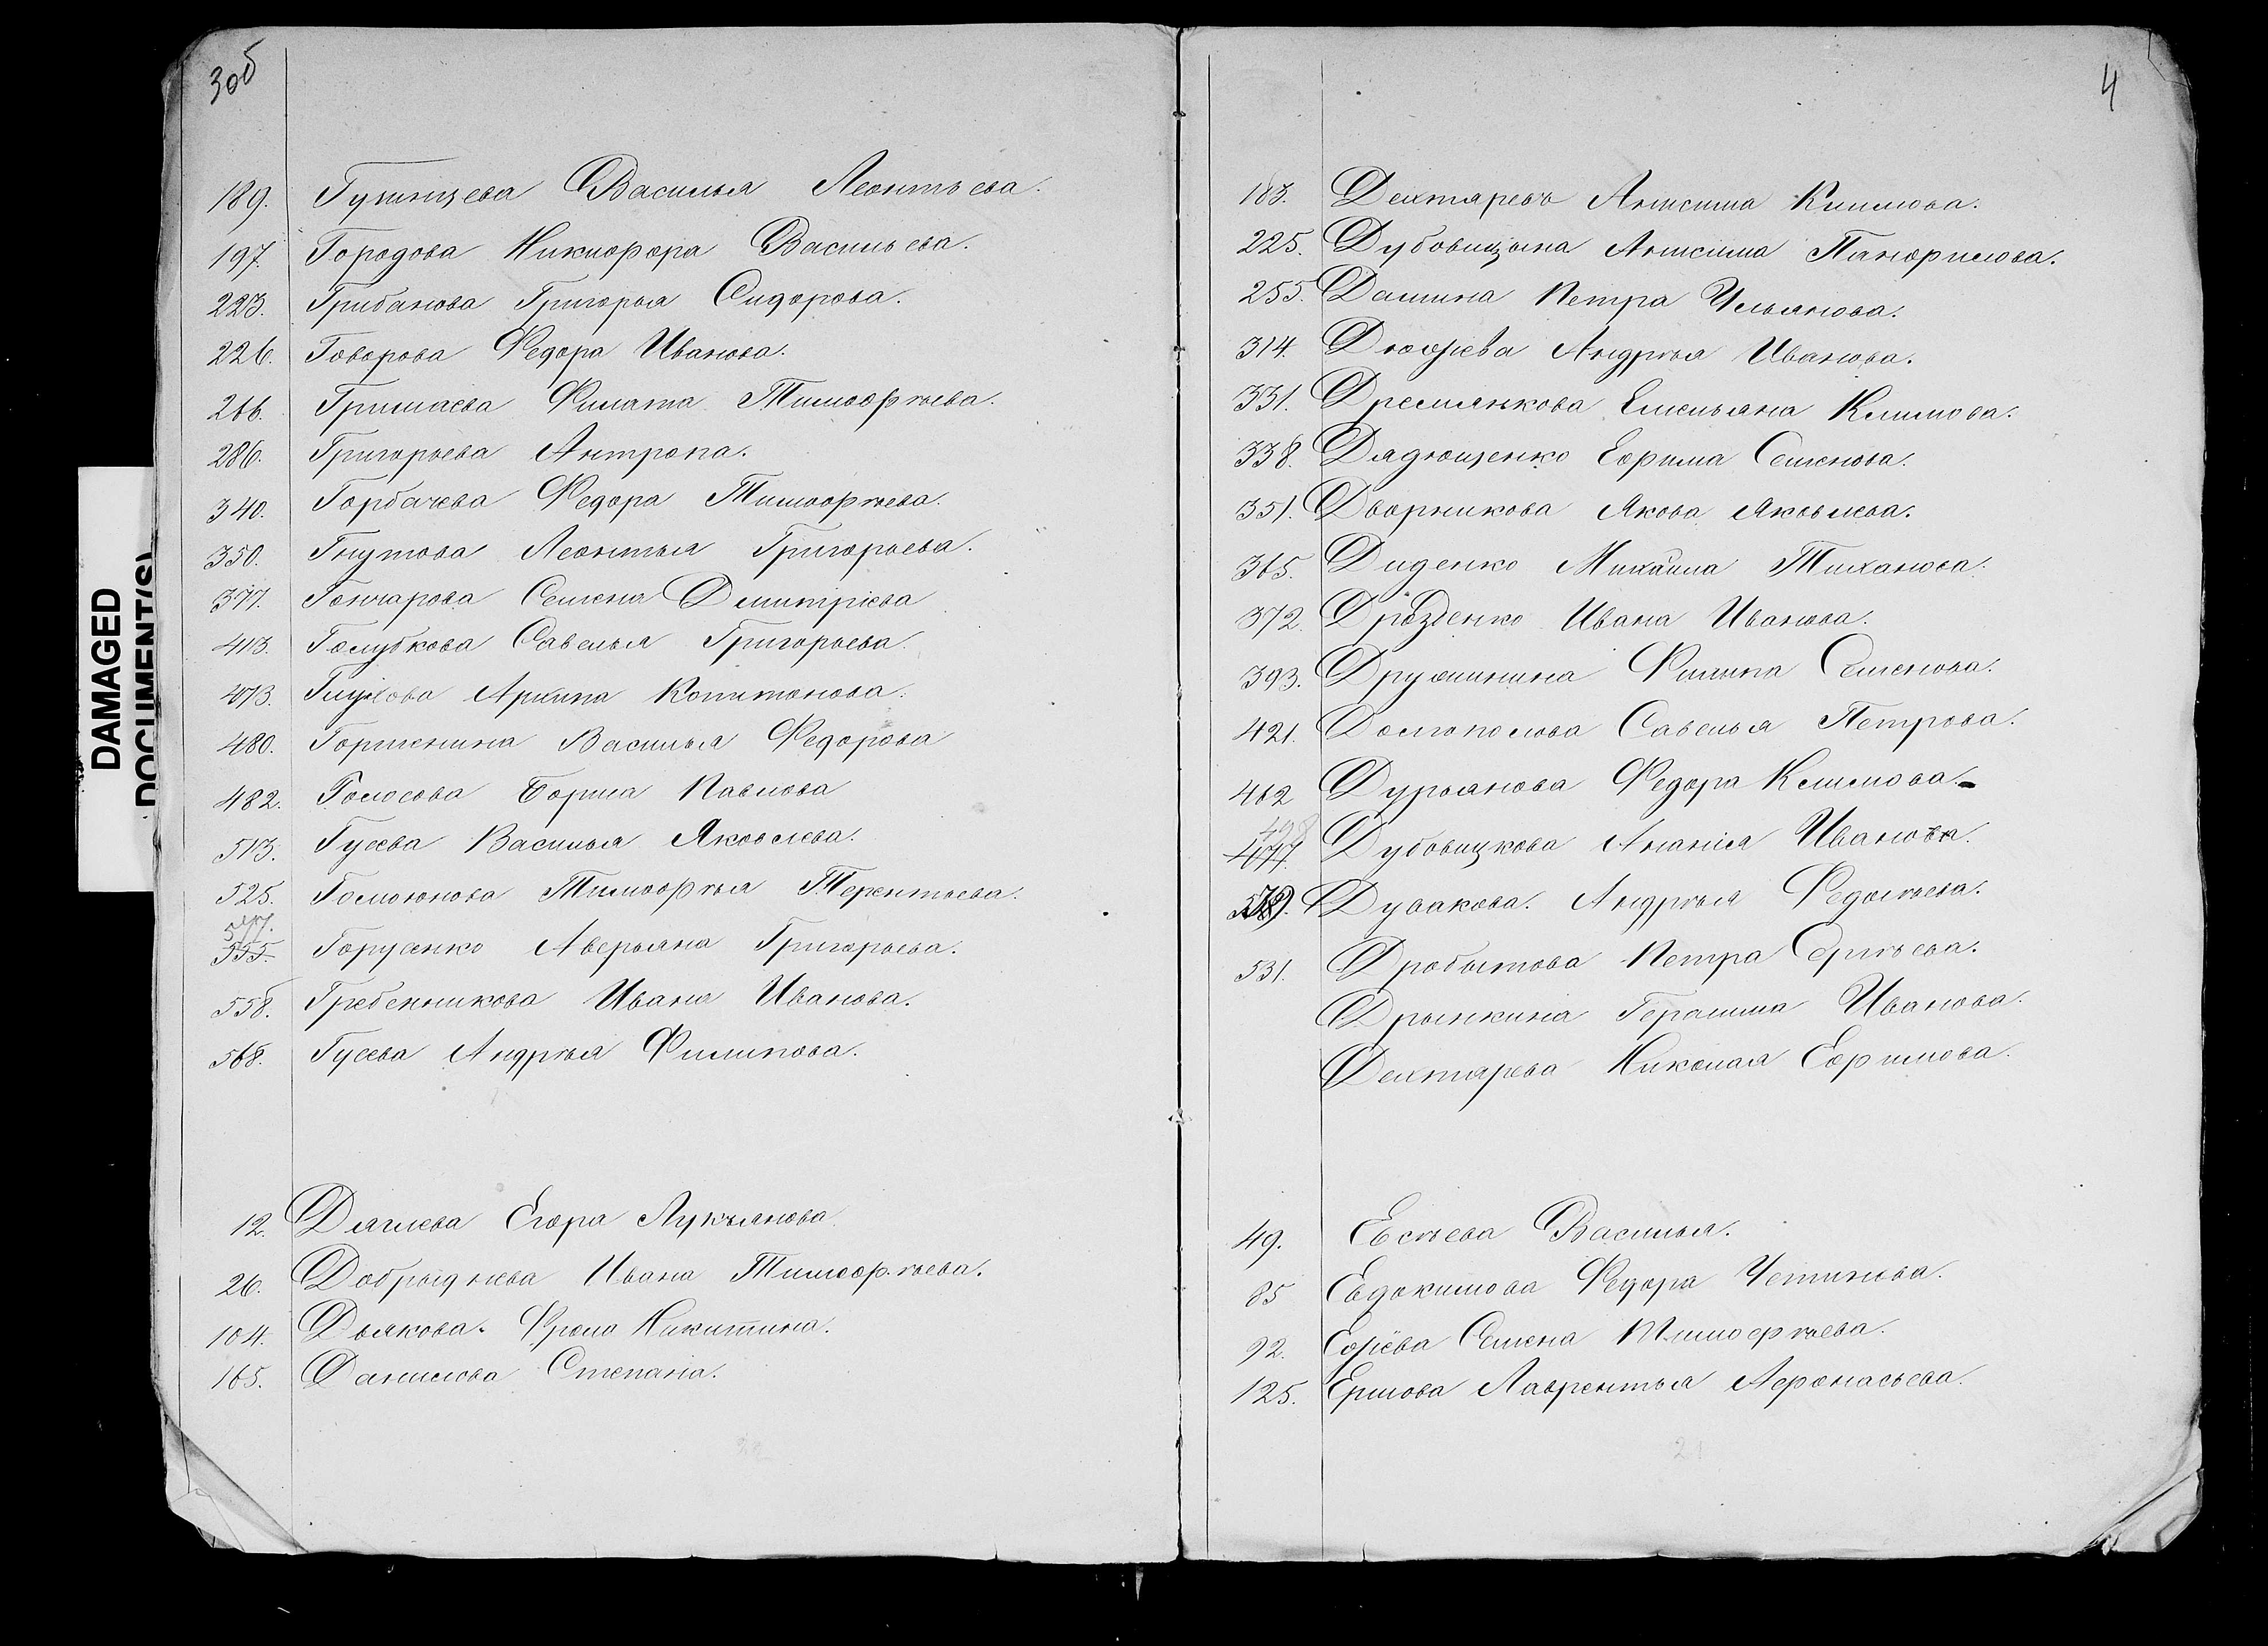 DAMAGED
DOCUMENT(S)
3об
189. Гушищева Василья Леонтьева.
197. Городова Никифора Васильева.
223. Грибанова Григорья Сидорова.
226. Говорова Федора Иванова.
266. Гришаева Филата Тимофѣева.
286. Григорьева Антропа.
340. Горбачева Федора Тимофѣева.
350. Гнутова Леонтья Григорьева.
377. Гончарова Семена Дмитріева
413. Голубкова Савелья Григорьева.
473. Глухова Архипа Капитонова.
480. Горшенина Василья Федорова
482. Голосова Павлова
513. Гусева Василья Яковлева.
525. Тимофѣя Терентьева.
577.
555. Горуенко Аверьяна Григорьева.
558. Гребенникова Ивана Иванова.
568. Гусева Андрѣя Филипова.
12. Дяглева Егора Лукьянова.
26. Добрыднева Ивана Тимофѣева.
104. Дьякова. Фрола Никитина.
165. Данилова Степана.
4
183. Дехтаревъ Анисима Климова.
225. Дубовицына Анисима Панфилова.
255. Дашина Петра Ульянова.
314. Андрѣя Иванова.
331. Дремлякова Емельяна Климова.
338. Дядющенко Ефима Семенова.
351. Дворникова Якова Яковлева.
365. Диденко Михаила Тиханова.
372. Дрозденко Ивана Иванова.
393. Дружинина Филипа Семенова.
421. Долгополова Савелья Петрова.
462 Дурьянова Федора Климова.
498
477. Дубовицкова Ананія Иванова.
Дувакова. Андрѣя Федотьева.
531. Дробытова Петра Сергѣева.
Дрынкина Герасима Иванова.
Дехтярева Николая Ефимова.
49. Евсѣева Василья.
85 Евдокимова Федора Устинова.
92. Семена Тимофѣева.
125. Ершова Лаврентья Афонасьева.